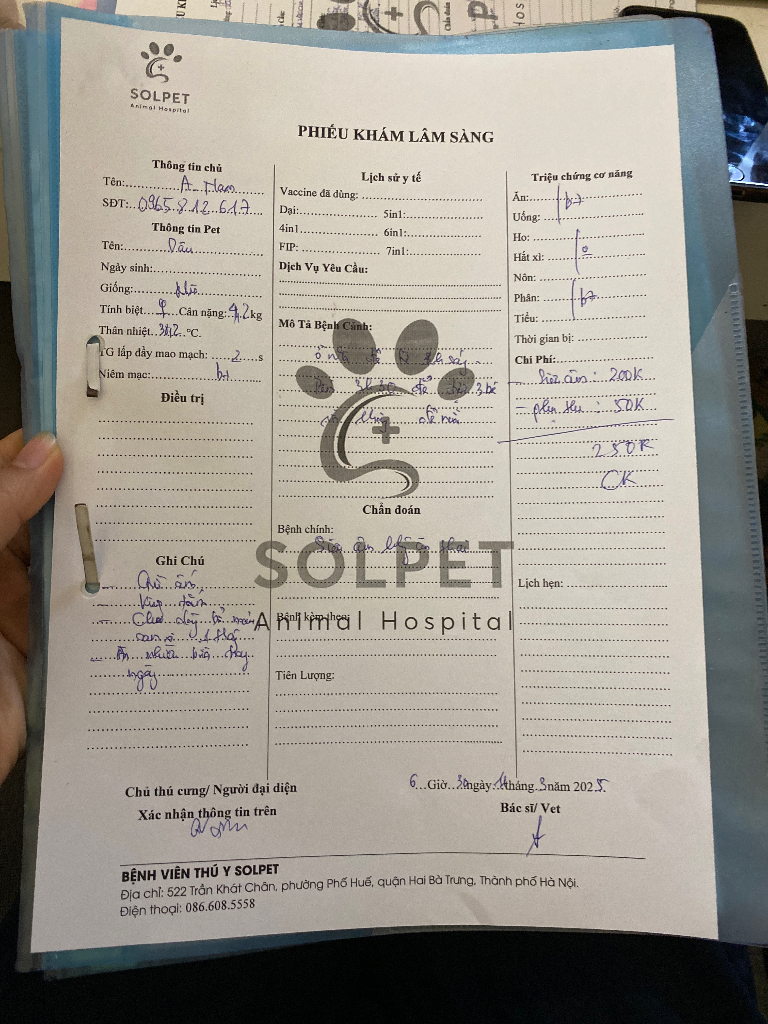 SOLPET
Animal Hospital
PHIẾU KHÁM LÂM SÀNG
Thông tin chủ
Tên: A. Nam
SĐT: 0965.812.617
Thông tin Pet
Tên: Dâu
Ngày sinh:
Giống:
Tính biệt ♀ Cân nặng: 4,2kg
Thân nhiệt °C.
TG lấp đầy mao mạch: 2 s
Niêm mạc: bt
Điều trị
Ghi Chú
- Chỗ ấm,
-
- Cho
- Ăn nhiều bữa
ngày
Lịch sử y tế
Vaccine đã dùng:
Dại: 5in1:
4in1 6in1:
FIP: 7in1:
Dịch Vụ Yêu Cầu:
Mô Tả Bệnh Cảnh:
ở nhà
đẻ 3 bé
Chẩn đoán
Bệnh chính:
Siêu âm
Bệnh kèm theo:
Tiên Lượng:
Triệu chứng cơ năng
Ăn: bt
Uống:
Ho:
Hắt xì: 0
Nôn:
Phân: bt
Tiểu:
Thời gian bị:
Chi Phí:
- Siêu âm: 200K
- phụ thu: 50K
250K
CK
Lịch hẹn:
SOLPET
Animal Hospital
Chủ thú cưng/ Người đại diện
Xác nhận thông tin trên
6 Giờ 30 ngày tháng 3 năm 2025.
Bác sĩ/ Vet
BỆNH VIỆN THÚ Y SOLPET
Địa chỉ: 522 Trần Khát Chân, phường Phố Huế, quận Hai Bà Trưng, Thành phố Hà Nội.
Điện thoại: 086.608.5558